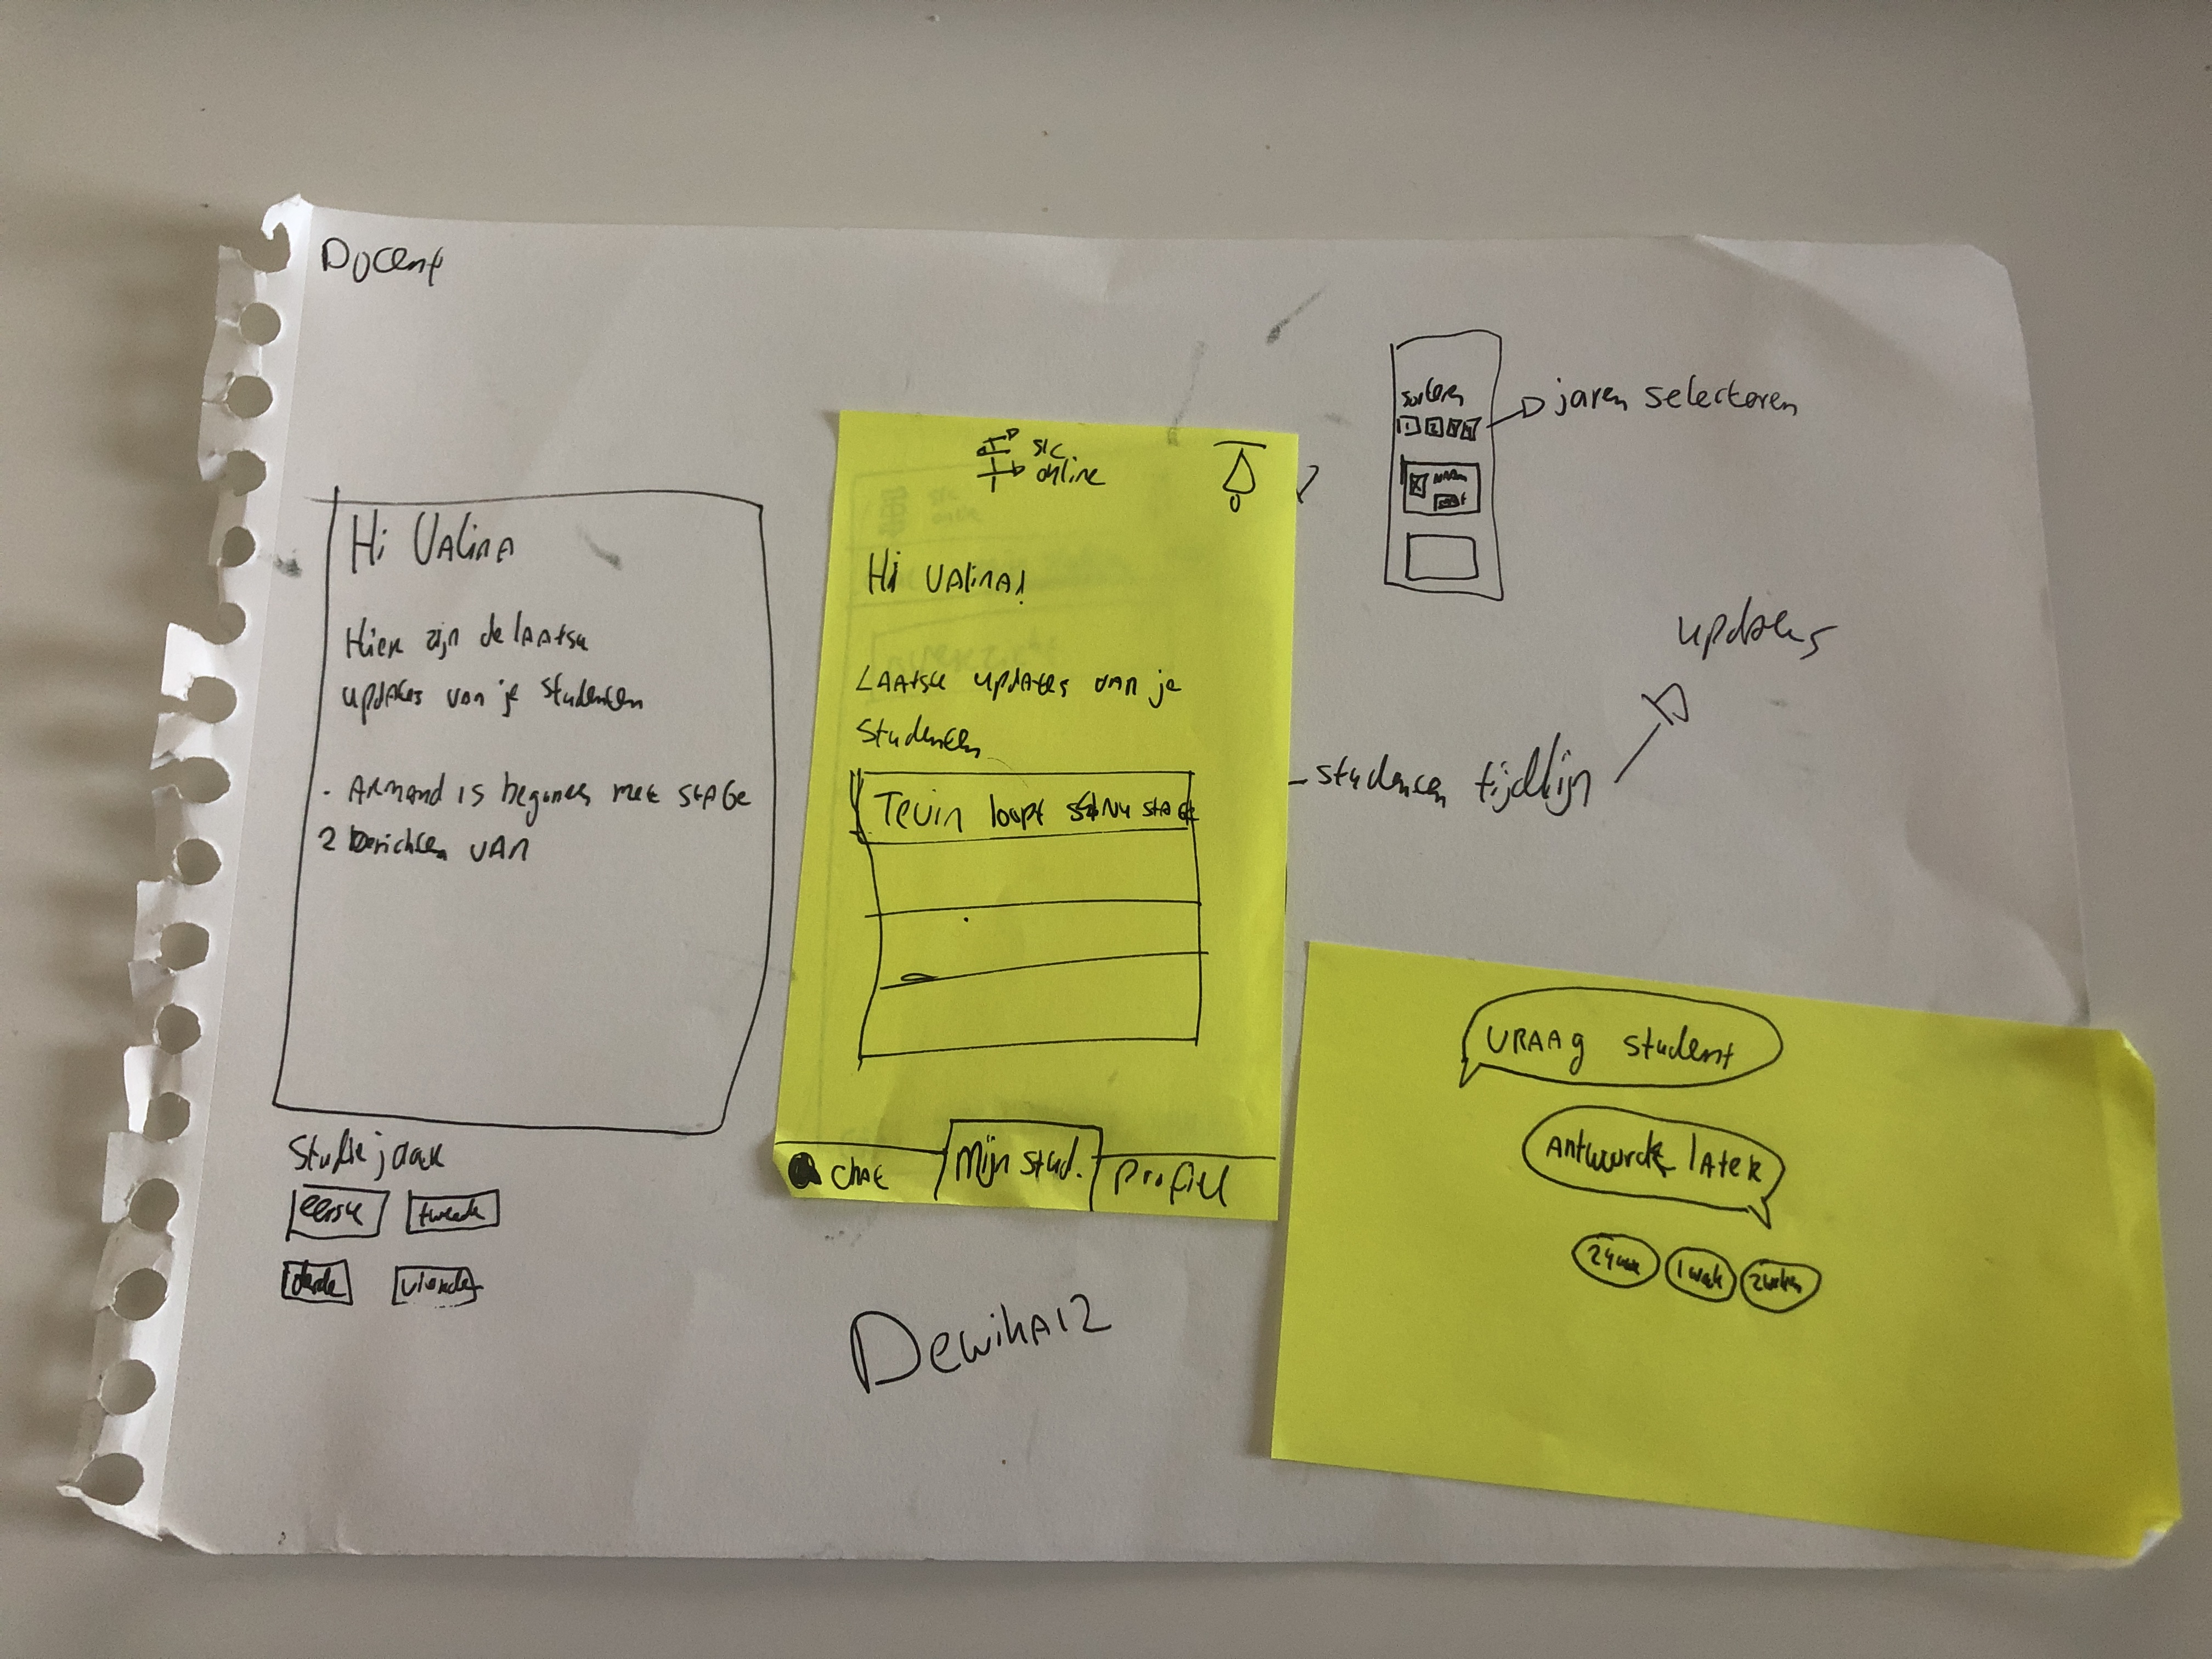 Docent
Hi VAlinA
Hier zijn de lAAtste
updates van je studenten
· ARMAnd is begonnen met stAGe
2 berichten VAn
Studiejaar
eerste
tweede
derde
vierde
SLC
online
Hi VAlinA!
LAAtste updates van je
studenten
Tevin loopt
Chat
Mijn stud.
Profiel
DewihA12
jaren selecteren
- studenten tijdlijn
updates
VRAAg student
Antwoord lAter
24uur
1 week
2 weken